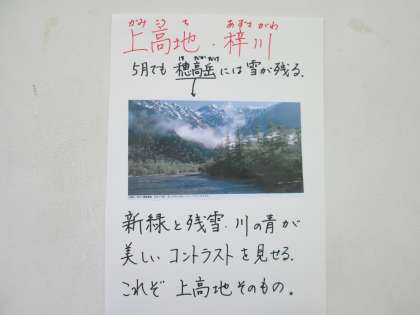 かみこうち あずさがわ
上高地・梓川
5月でも穂高岳には雪が残る.
ほたかだけ
新緑と残雪.川の青が
美しいコントラストを見せる.
これぞ 上高地そのもの。